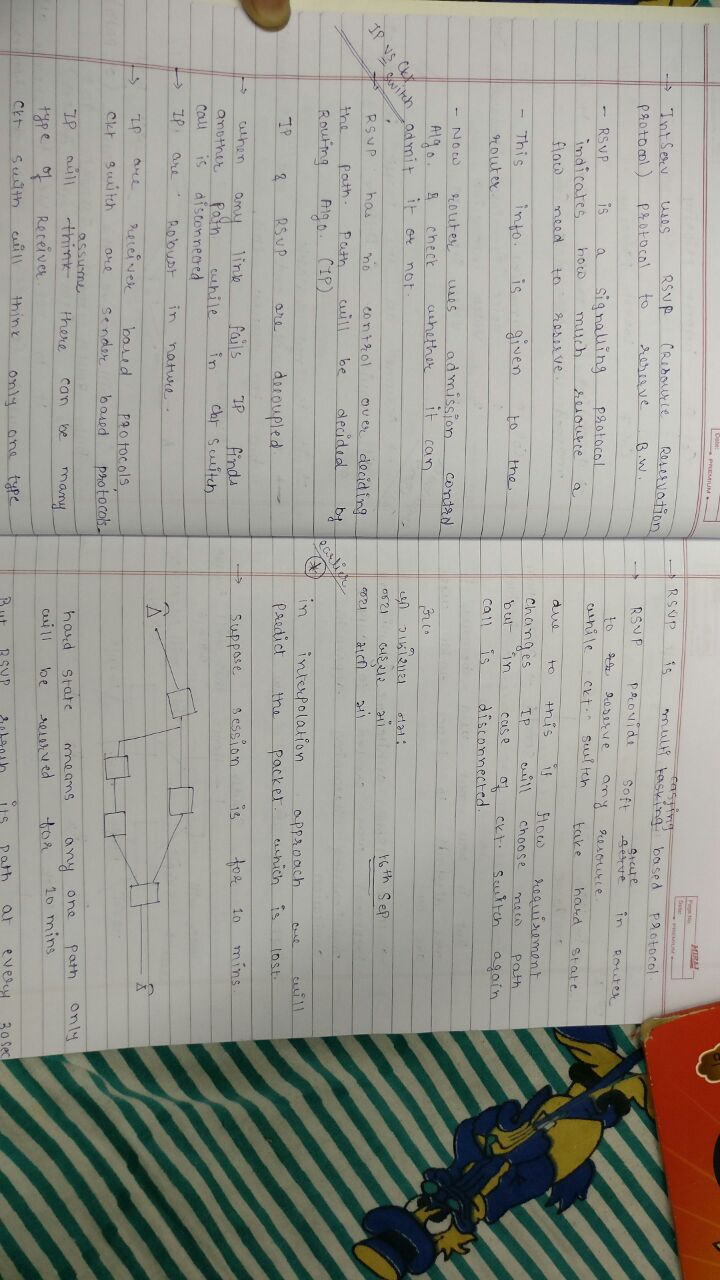 Date:
PREMIUM
→ IntServ uses RSVP (Resource Reservation
protocol) protocol to reserve B.W.
- RSVP is a signalling protocol
indicates how much resource a
flow need to reserve.
- This info. is given to the
router
- Now router uses admission control
Algo. & check whether it can
admit it or not.
IP vs ckt switch
→ RSVP has no control over deciding
the path. Path will be decided by
Routing Algo. (IP)
IP & RSVP are decoupled
→ when any link fails IP finds
another path while in ckt switch
call is disconnected
→ IP are Robust in nature.
→ IP are receiver based protocols
ckt switch are sender based protocols.
assume
IP will think there can be many
type of Receiver.
ckt switch will think only one type
Page No.
Date:
PREMIUM
→ RSVP is multi casting based protocol.
→ RSVP provide soft state in Router
to reserve any resource
while ckt. switch take hard state
due to this if flow requirement
changes IP will choose new path
but in case of ckt. switch again
call is disconnected.
16th Sep
earlier
in interpolation approach we will
predict the packet which is lost.
→ Suppose session is for 10 mins.
hard state means any one path only
will be reserved for 10 mins
But RSVP refresh its path at every 30 sec